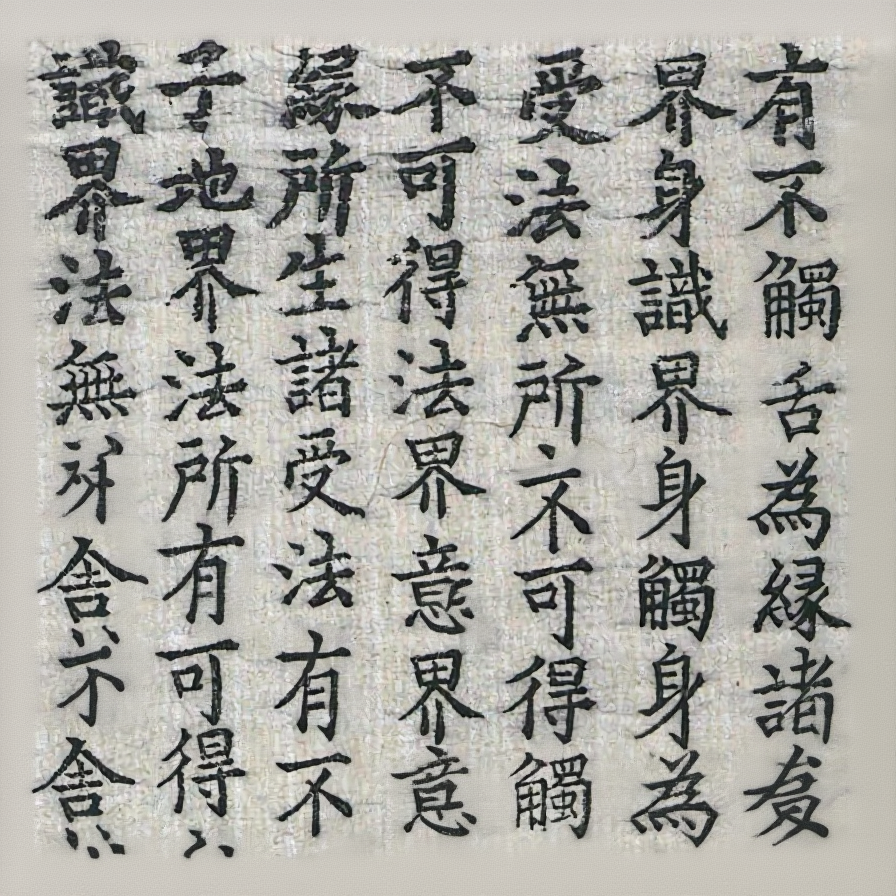 有不觸舌為縁諸
界身識界身觸身為
受法無所不可得觸
不可得法界意界意
縁所生諸受法有不
子地界法所有可得
識界法無舍不舍